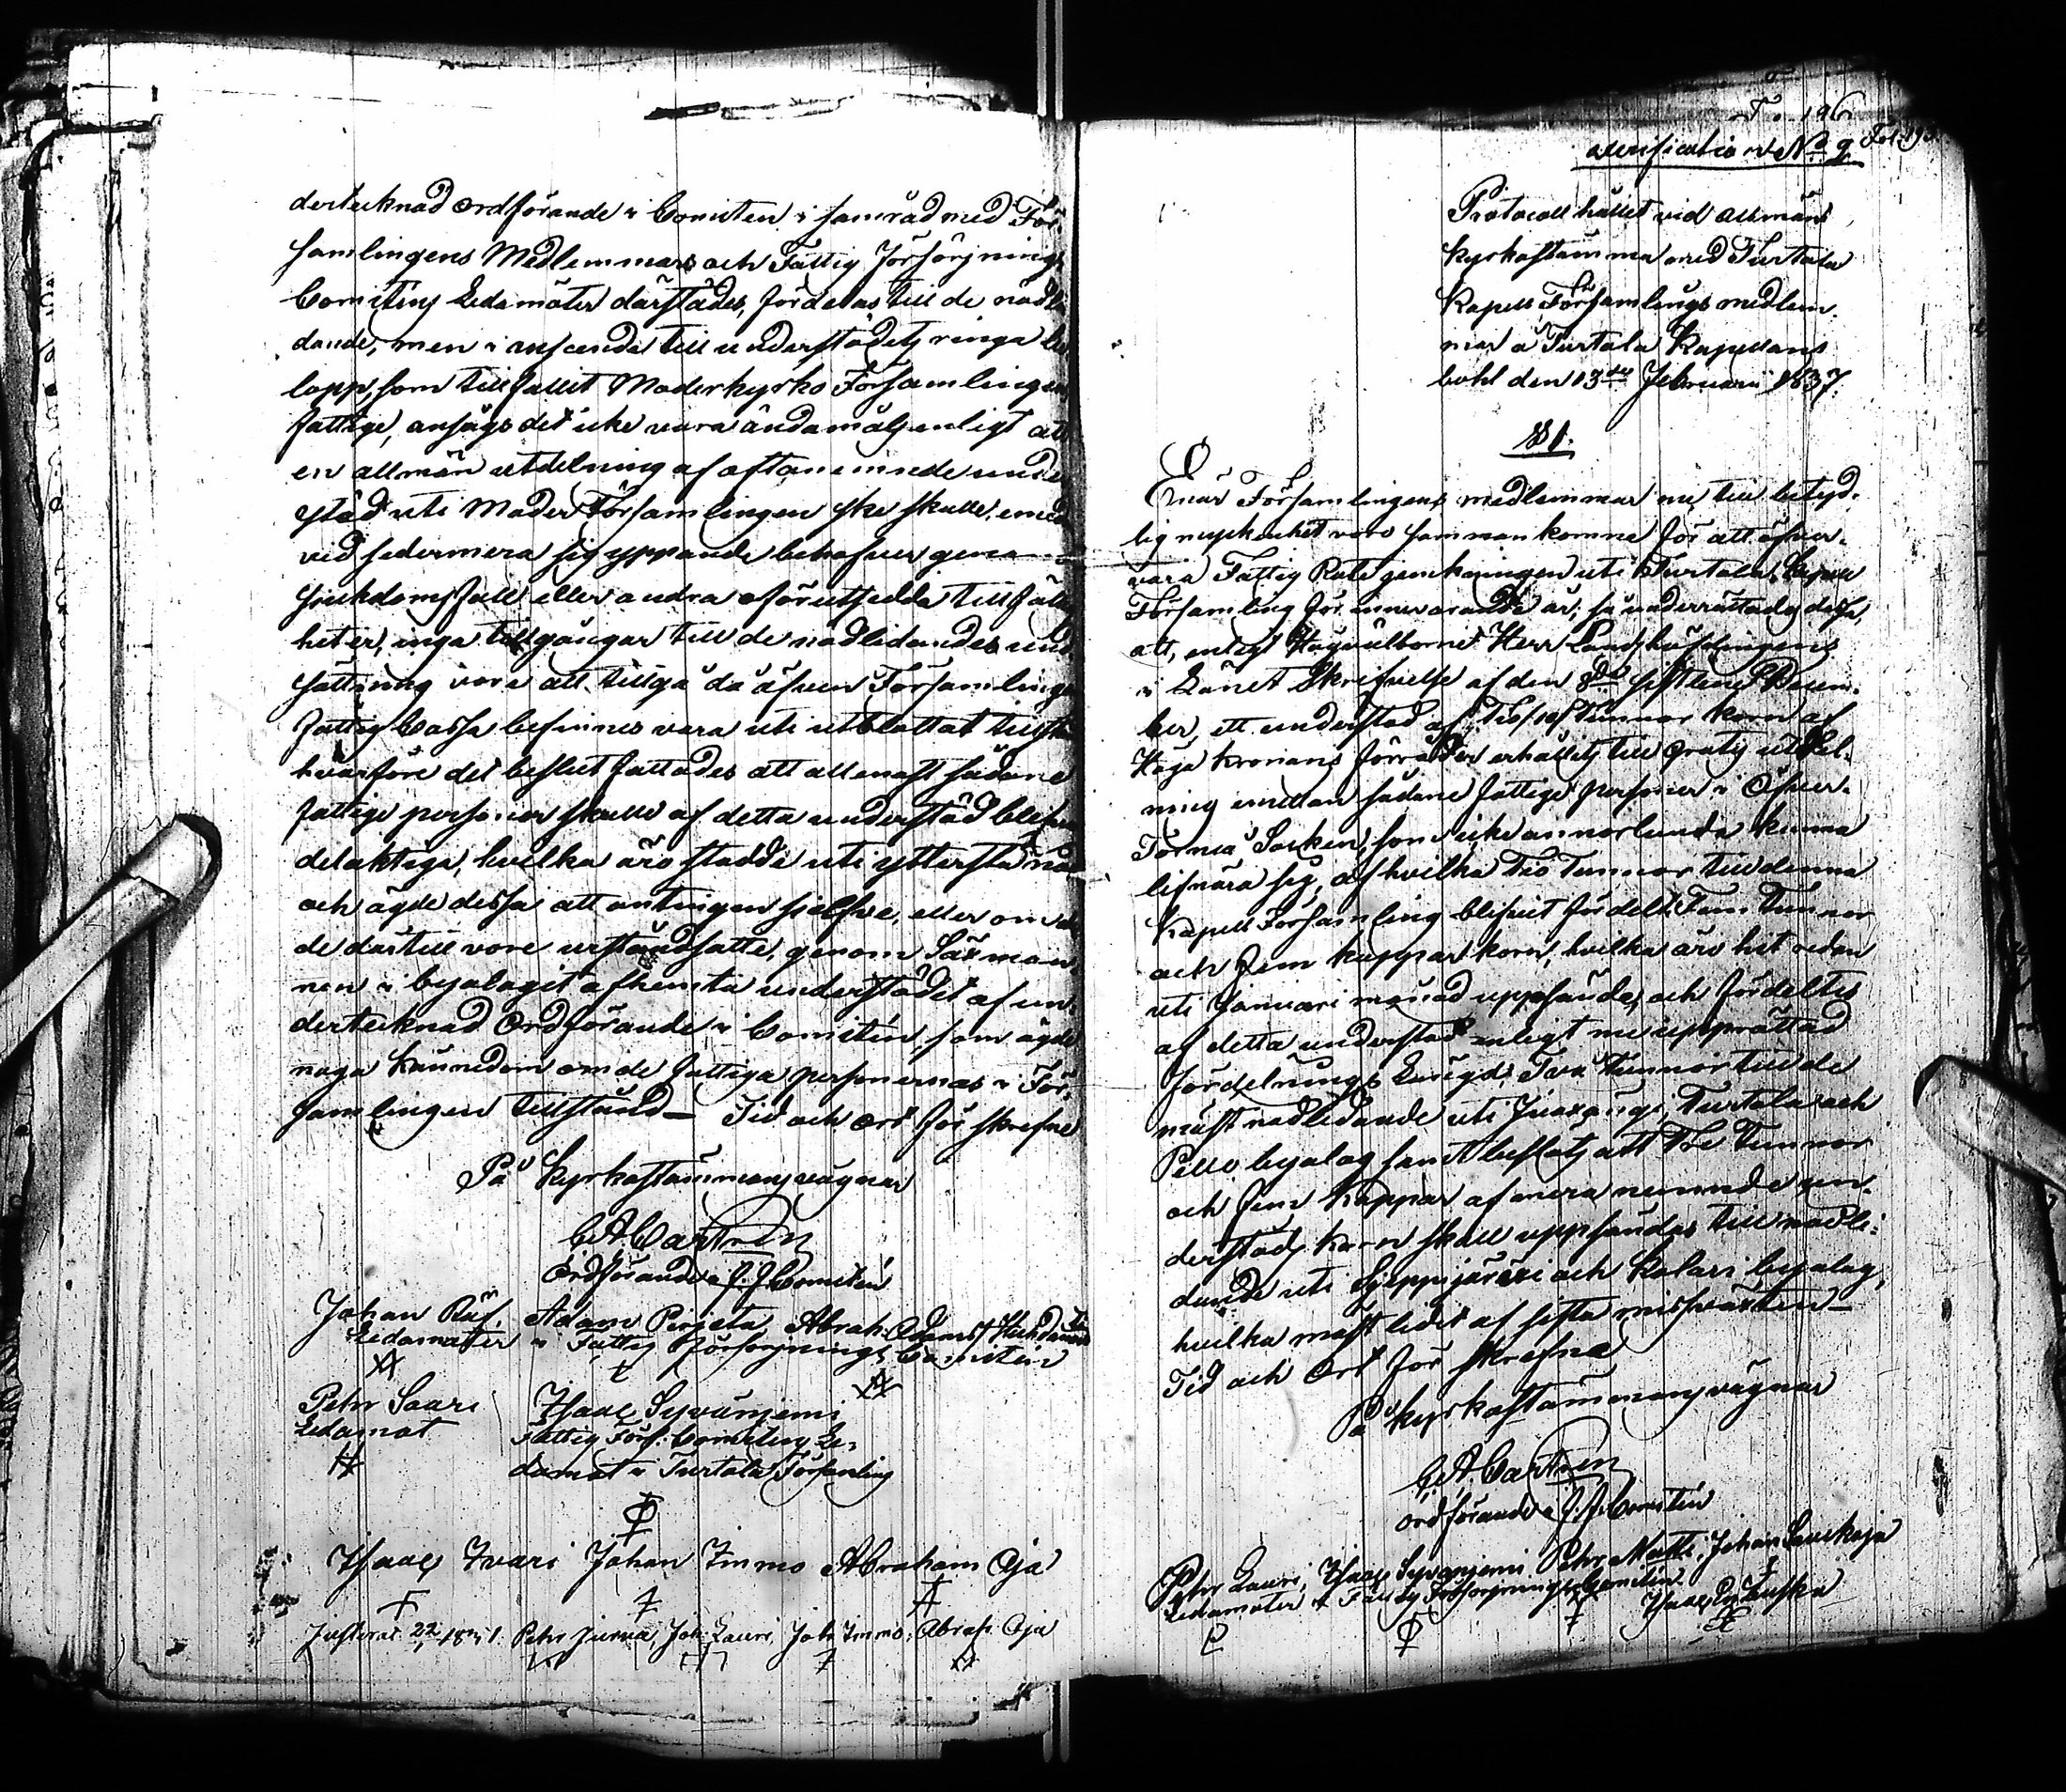 dertecknad Ordförande i Comiten i samråd med För-
samlingens Medlemmar och Fattig Försörjnings
Comiténs Ledamöter därstädes, fördelas till de nödli
dande, men i anseende till understödets ringa be
lopp, som tillfallit Moderkyrko Församlingens
fattige, ansågs det icke vara ändamålsenligt att
en allmän utdelning af oftanemnde under
stöd uti Moder Församlingen ske skulle, emedan
vid sedermera sig yppande behofver genom
sjukdoms fall eller andra oförutsedda tillfällig
heter, inga tillgångar till de nödlidandes und
sättning vore att tillgå då äfven Församlingens
Fattig Cassa befinnes vara uti utblottat tillstånd
hvarföre det beslut fattades att allenast sådane
fattige personer skulle af detta understöd blifva
delaktige, hvilka äro stadde uti yttersta nöd
och ägde dessa att antingen sjelfve, eller om
de därtill vore urståndsatte, genom Sexman-
nen i byalaget afhemta understödet af un-
dertecknad Ordförande i Comitén, som ägde
noga kännedom om de fattiga personernas i För-
samlingen tillstånd — Tid och Ort för skrefne
På Kyrkostämmans vägnar
C. A. Castrén
Ordförande i F. F. Comitén
Johan Adam Pirjeta Abrah.
Ledamöter i Fattig Försörjnings Comitén
Petr Saari Isaac Syvänjemi
Ledamot Fattig Förs: Comitens Le-
damot i Turtola Församling
Isaac Ivari Johan Immo Abraham Oja
Justerat 22/1 18 Petr Juena, Joh. Lauri, Joh Immo, Abrah. Oja
Fo 196
verification No 9 Fol.
Protocoll hållet vid allmän
kyrkostämma med Turtola
Kapell Församlings medlem-
mar å Turtola Kapellans
bohl den 13de Februarii 1837.
§ 1.
Enär Församlingens medlemmar nu till betyd-
lig myckenhet voro samman komne för att öfver-
vara Fattig Rote jemkningen uti Turtola Kapell
Församling för innevarande år, så underrättades desse,
att, enligt Högvälborne Herr Landshöfdingens
i Länet Skrifvelse af den sistledne Decem-
ber, ett understöd af Tio/10/ Tunnor korn af
Höga Kronans förråder erhållits till gratis utdel-
ning emellan sådane fattige personer i Öfver-
Torneå Socken, som icke annorlunda kunna
lifnära sig, af hvilka Tio Tunnor till denna
Kapell Församling blifvit fördelt Fem Tunnor
och fem kappar korn, hvilka äro hit redan
uti Januari månad uppsände, och fördeltes
af detta understöd enligt nu upprättad
fördelnings Längd, Två Tunnor till de
mäst nödlidande uti Juoxengi, Turtola och
Pello byalag samt beslöts att Tre Tunnor
och fem kappar af mera nemnde un-
derstöds korn skall uppsändas till nödli-
dande uti Sjeppijärvi och Kolari byalag,
hvilka mäst lidit af sista missväxten —
Tid och Ort för skrefne
På kyrkostämmans vägnar
C. A. Castrén
Ordförande i F. F. Comitén
Petr Lauri, Isaac Syvänjemi Petr Matti, Johan
Ledamöter i Fattig Försörjnings Comitén Isaac